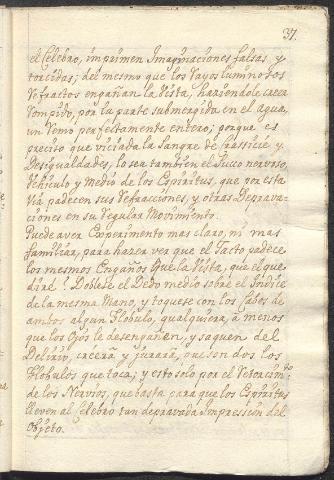 37.
el Celebro, imprimen Imaginaciones falsas, y
torcidas; del mesmo que los Rayos luminosos
Refractos engañan la Vista, haziendole creer
Rompido, por la parte submergida en el agua,
un Remo perfectamente entero; porque es
preciso que viciada la Sangre de crassicie y
Desigualdades, lo sea tambien el Succo nerveo,
Vehiculo y Medio de los Espiritus, que por esta
Via padecen sus Refracciones, y otras Deprava-
ciones en su regular Movimiento.
Puede aver Experimento mas claro, ni mas
familiar, para hazer ver que el Tacto padece
los mesmos Engaños que la Vista, que el que
diré? Doblese el Dedo medio sobre el Indice
de la mesma Mano, y toquese con los Cabos de
ambos algun Globulo, qualquiera, à menos
que los Ojos le desengañen, y saquen del
Delirio, creera y jurarà, que son dos los
Globulos que toca; y esto solo por el Retorcimto.
de los Nervios, que basta para que los Espiritus
lleven al Celebro tan depravada Impression del
Objeto.